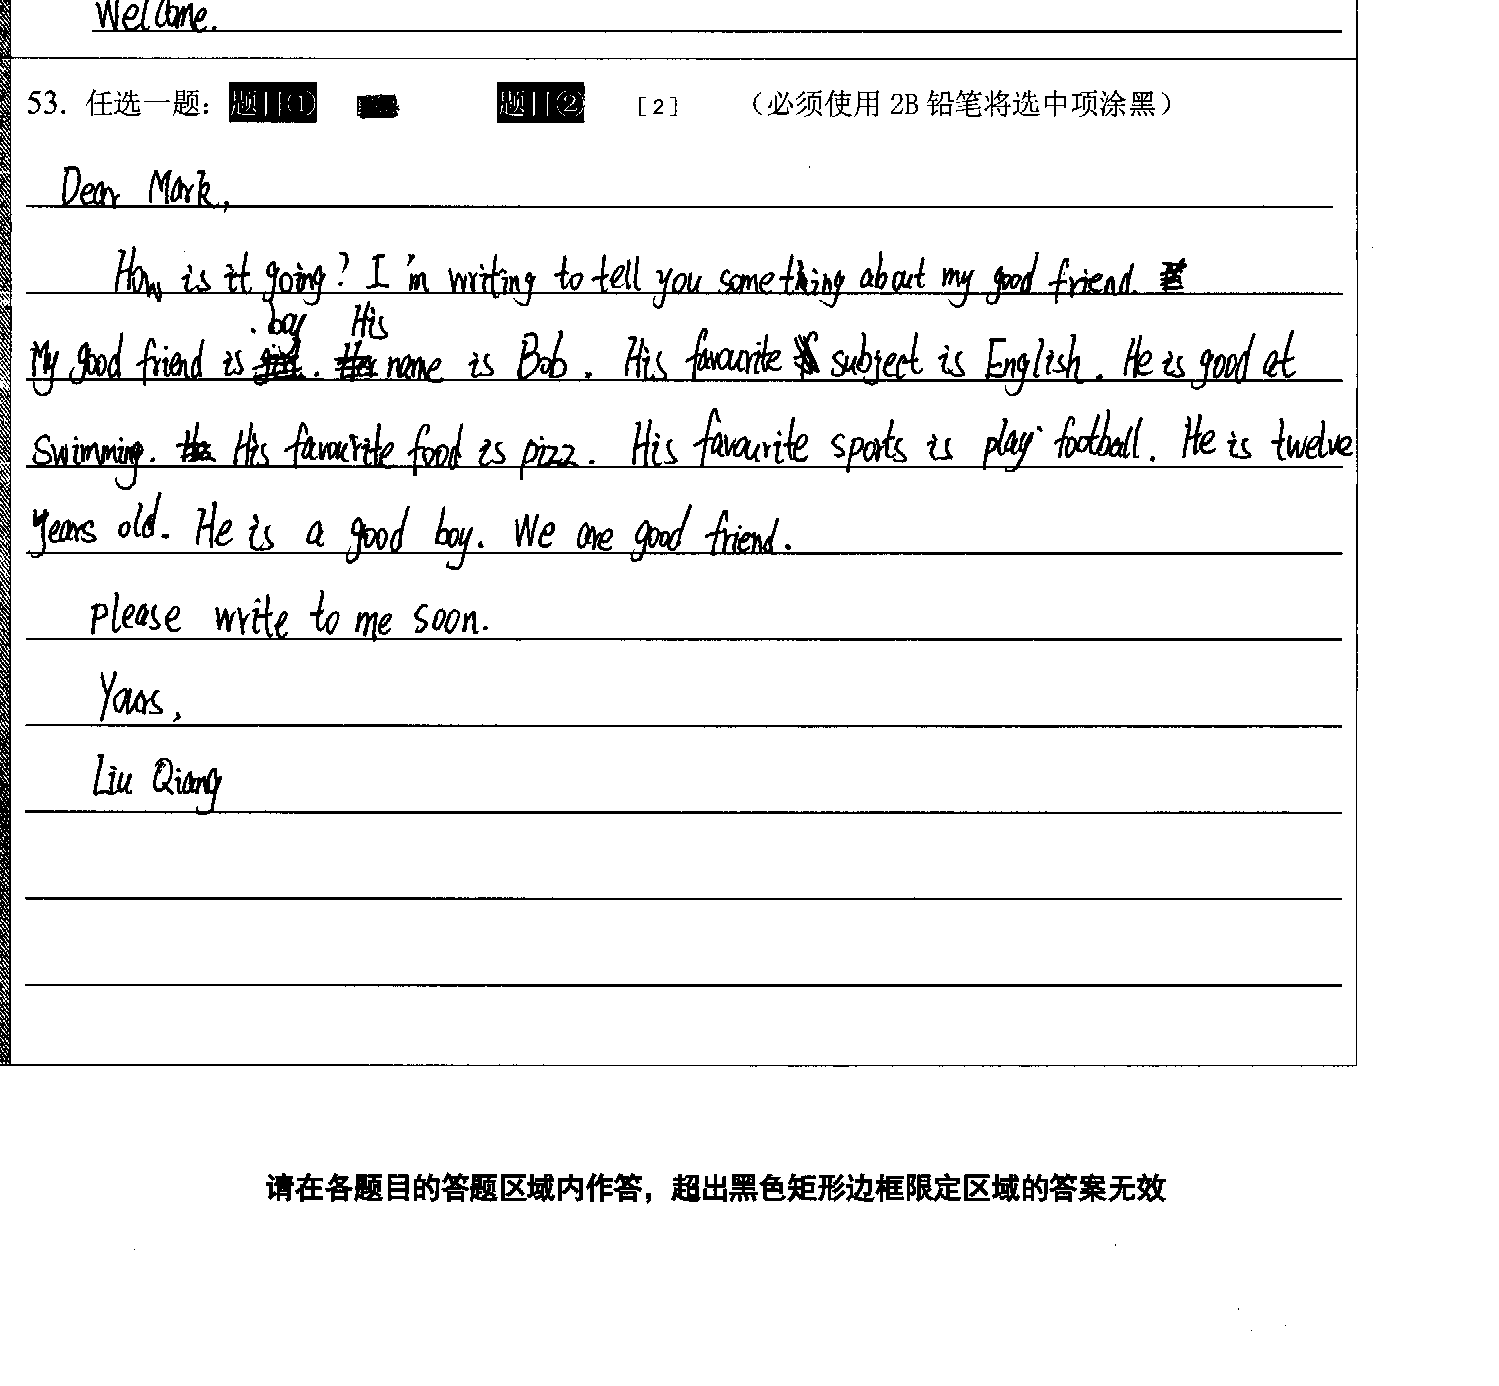 Welcome.
53. 任选一题： 题目① 题目② [2] （必须使用 2B 铅笔将选中项涂黑）
Dear Mark,
How is it going? I'm writing to tell you something about my good friend.
boy His
My good friend is girl. Her name is Bob. His favourite subject is English. He is good at
Swimming. His favourite food is pizz. His favourite sports is play football. He is twelve
years old. He is a good boy. We are good friend.
please write to me soon.
Yours,
Liu Qiang
请在各题目的答题区域内作答，超出黑色矩形边框限定区域的答案无效